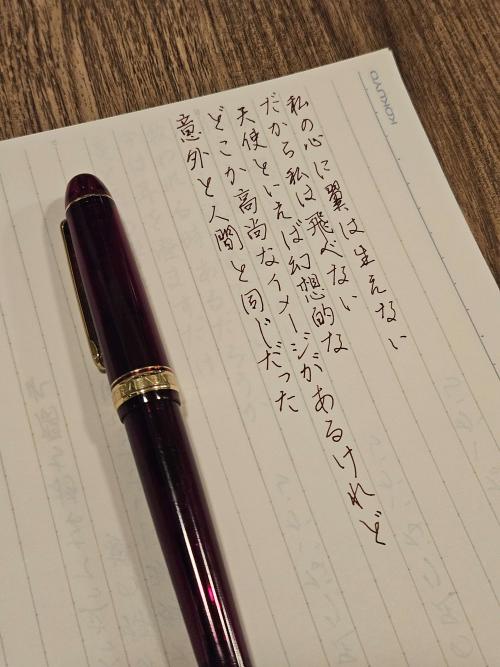 KOKUYO
私の心に翼は生えない
だから私は飛べない
天使といえば幻想的な
どこか高尚なイメージがあるけれど
意外と人間と同じだった